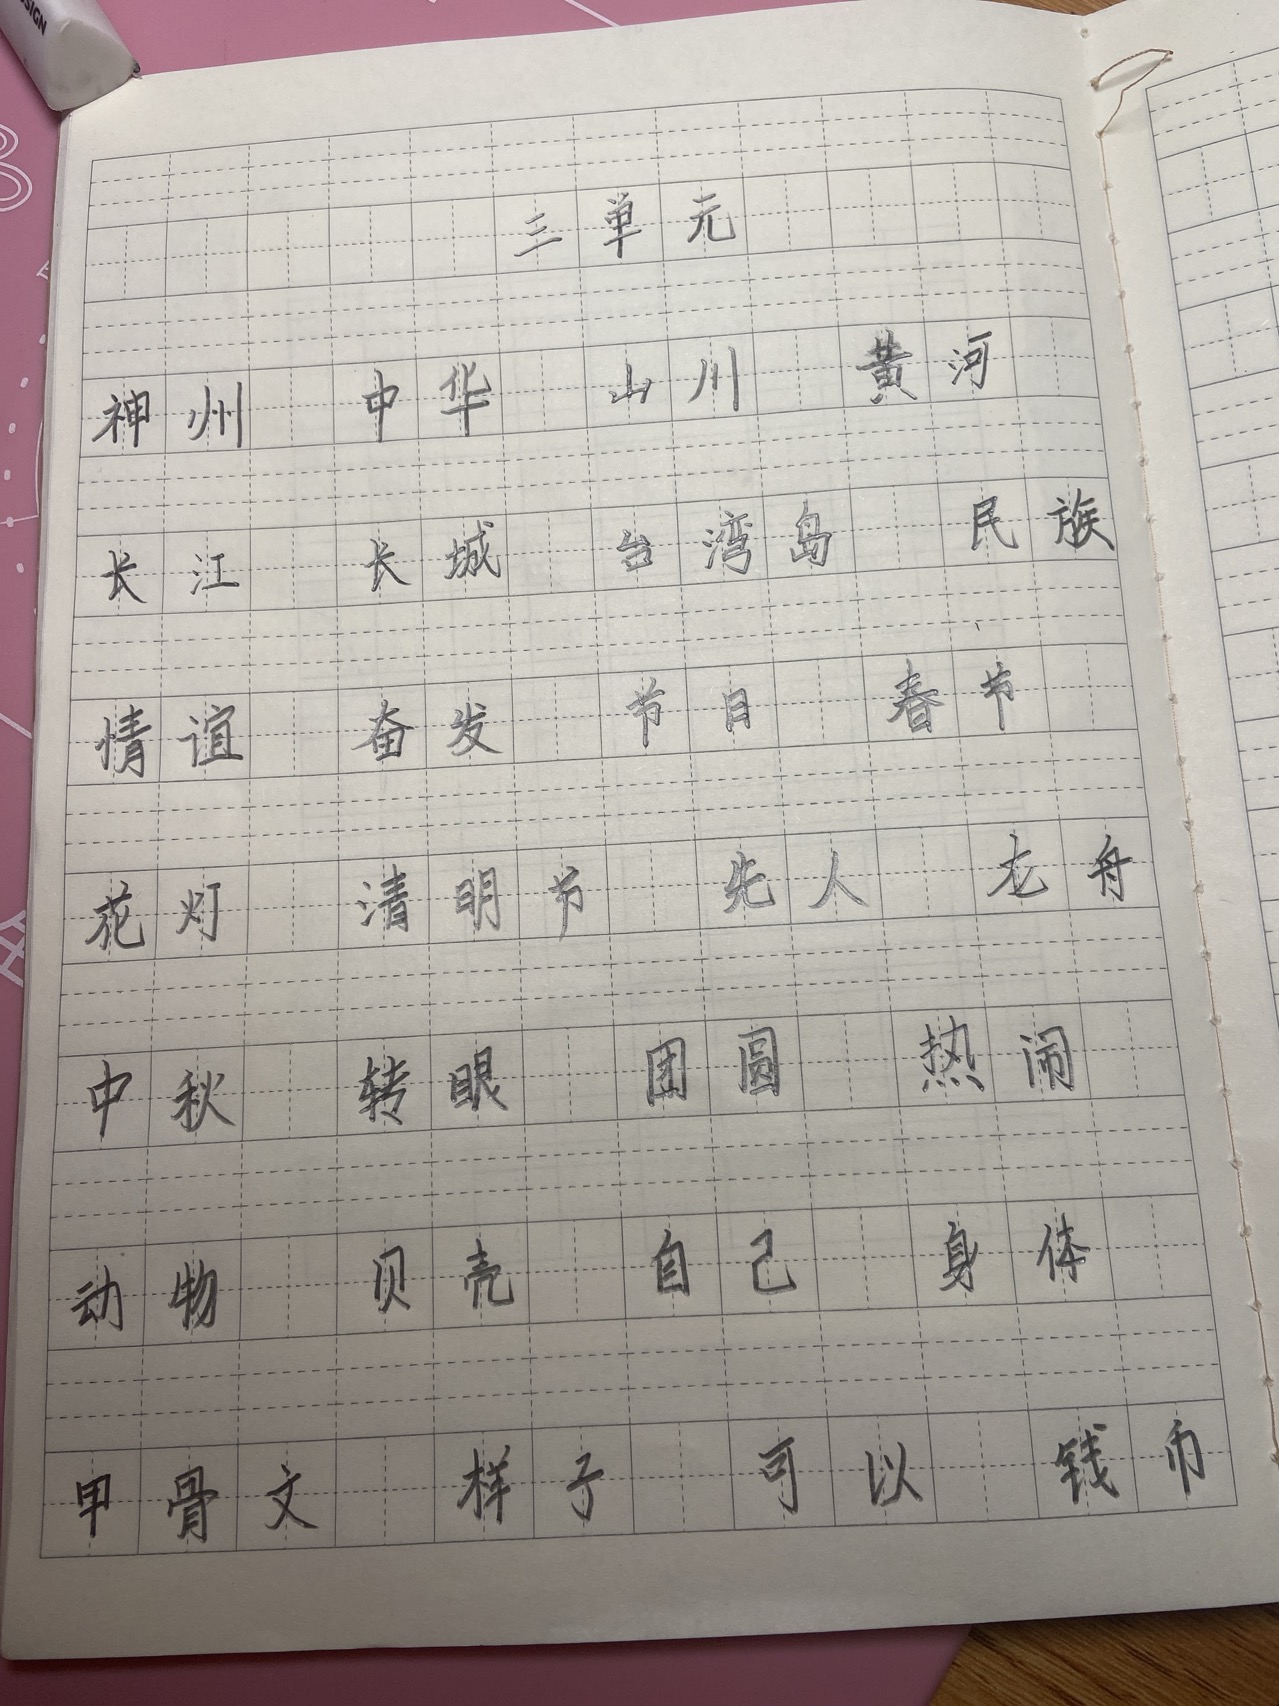 SIGN
三单元
神州 中华 山川 黄河
长江 长城 台湾岛 民族
情谊 奋发 节日 春节
花灯 清明节 先人 龙舟
中秋 转眼 团圆 热闹
动物 贝壳 自己 身体
甲骨文 样子 可以 钱币